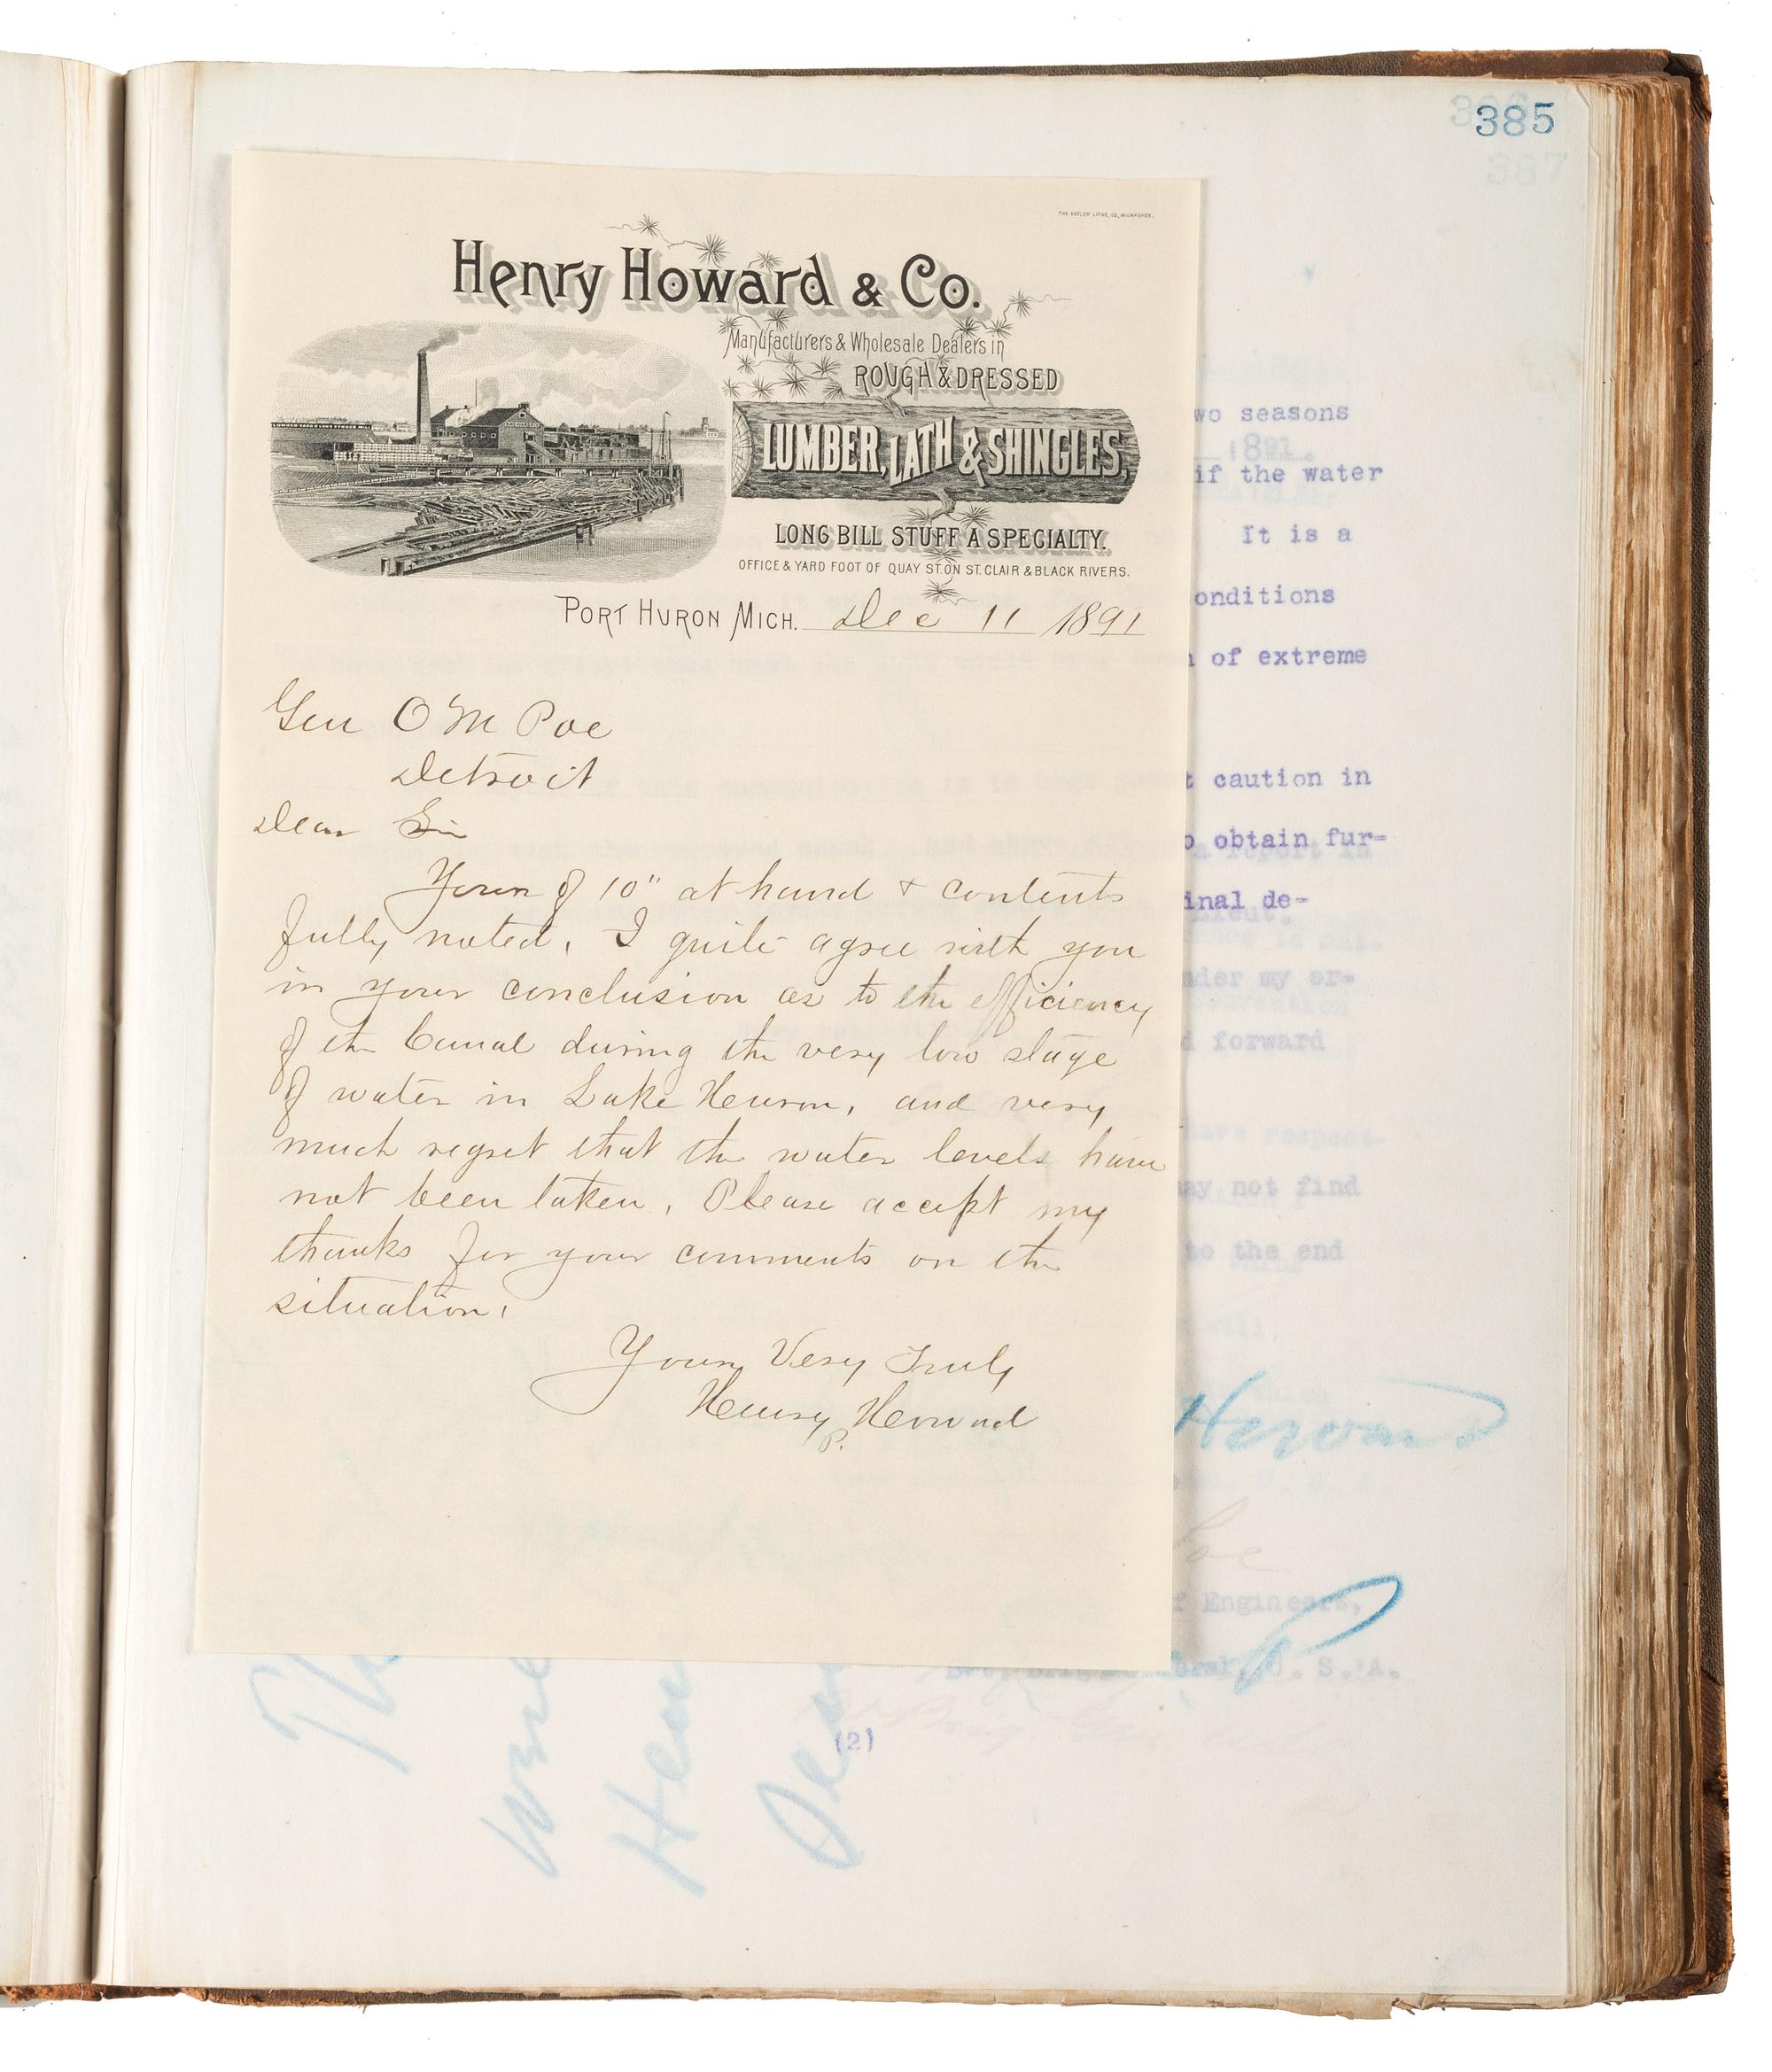 385
387
THE GUGLER LITHO. CO. MILWAUKEE.
Henry Howard & Co.
Manufacturers & Wholesale Dealers in
ROUGH & DRESSED
LUMBER, LATH & SHINGLES,
LONG BILL STUFF A SPECIALTY.
OFFICE & YARD FOOT OF QUAY ST. ON ST. CLAIR & BLACK RIVERS.
PORT HURON MICH. Dec 11 1891
Gen O M Poe
Detroit
Dear Sir
Yours of 10" at hand & contents
fully noted. I quite agree with you
in your conclusion as to the efficiency
of the Canal during the very low stage
of water in Lake Heuron, and very
much regret that the water levels have
not been taken. Please accept my
thanks for your comments on the
situation.
Yours Very Truly
Henry Howard
P.
wo seasons
1891.
if the water
It is a
onditions
of extreme
t caution in
o obtain fur-
a report in
inal de-
nder my or-
d forward
have respect-
may not find
to the end
will,
Howard
Poe
of Engineers,
eral, U. S. A.
(2)